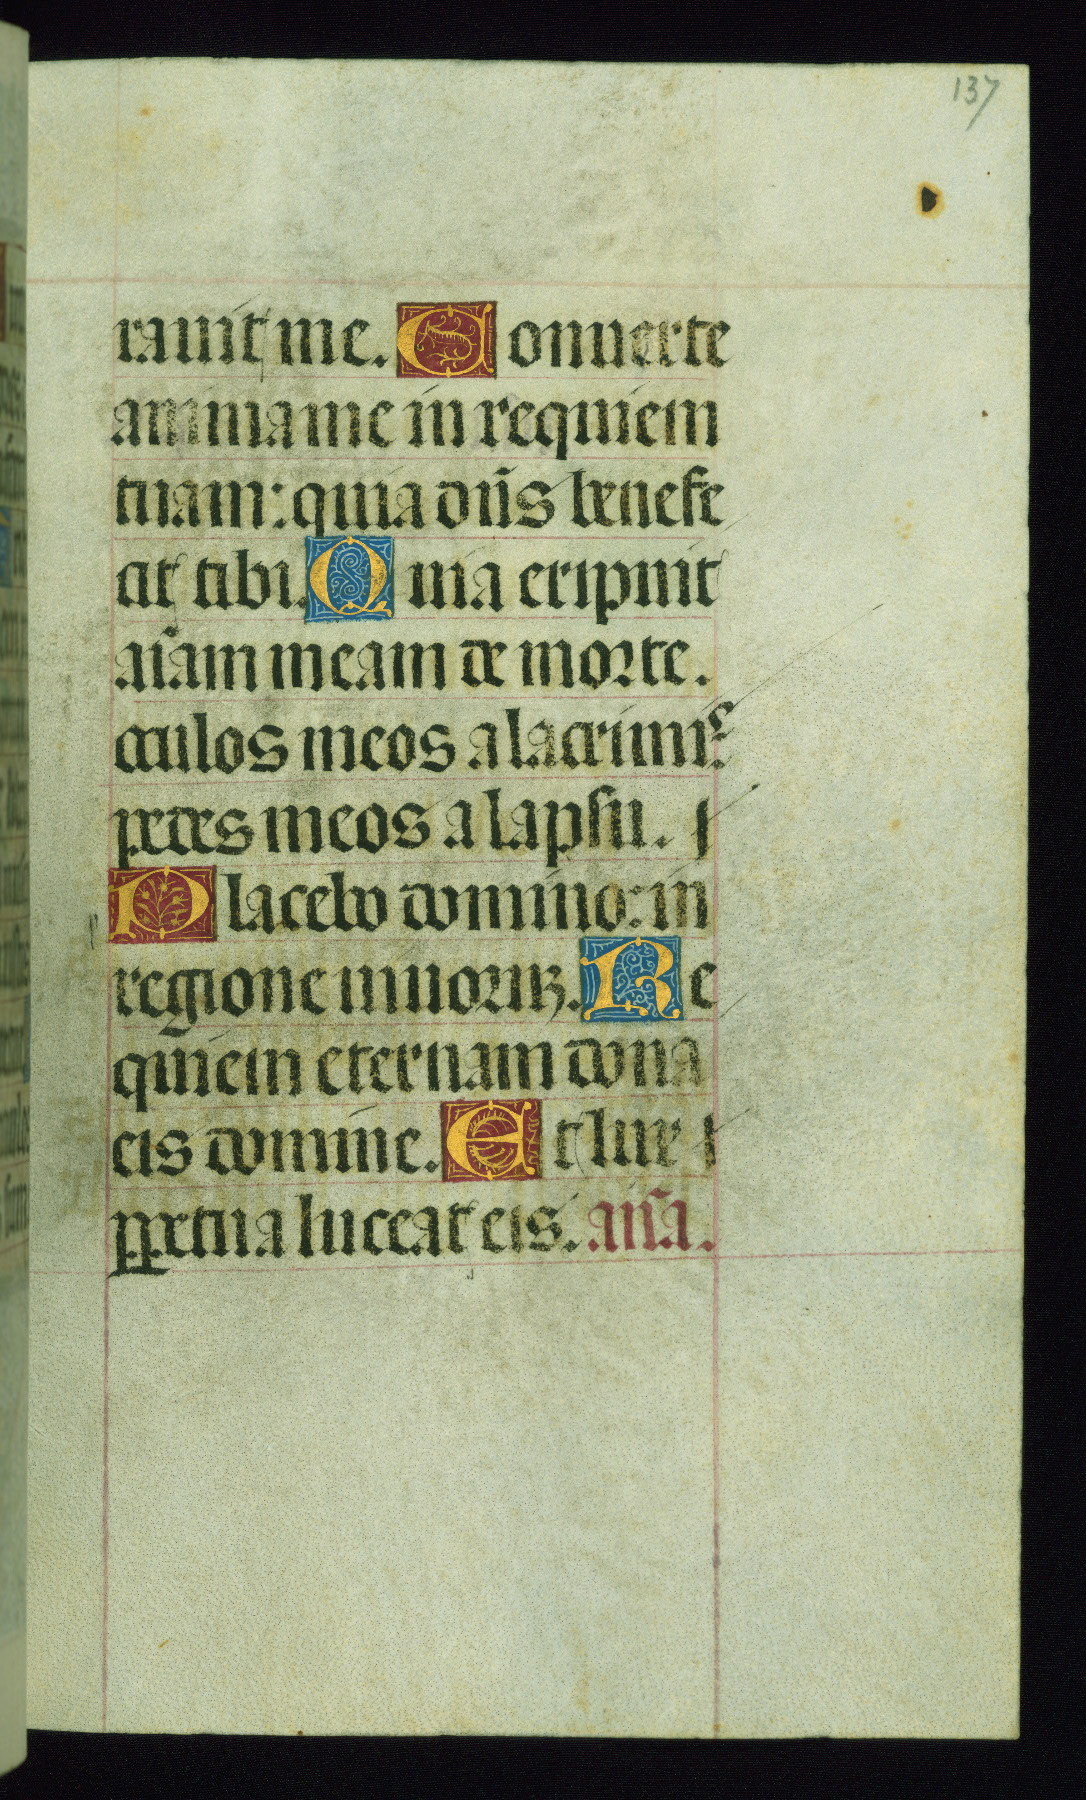 137
rauit me. Conuerte
anima me in requiem
tuam: quia dn̄s benefe
cit tibi. Quia eripuit
aīam meam de morte.
oculos meos a lacrimis
pedes meos a lapsu.
Placebo domino: in
regione viuoruꝫ. Re
quiem eternam dona
eis domine. Et lux
ꝑpetua luceat eis. an̄a.